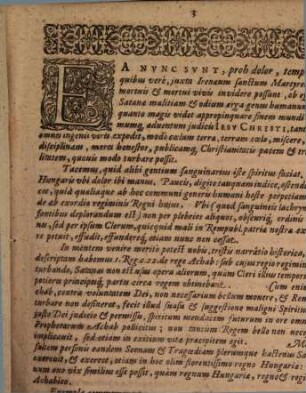 3
EA NVNC SVNT, proh dolor, temp
quibus verè, juxta Irenæum sanctum Martyre
mortuis & mortui vivis invidere possunt, ab e
Satanæ malitiam & odium erga genus humanu
quanto magis videt appropinquare finem mundi
mumq, adventum judicis IESV CHRISTI, tan
omnes ingenii vires expedit, modò cœlum terra, terram cœlo, miscere,
disciplinam, mores honestos, publicamq, Christianitatis pacem & tr
litatem, quovis modo turbare possit.
Tacemus, quid alibi gentium sanguinarius iste spiritus faciat,
Hungariâ ubi ibi manus, Paucis, digito tanquam indice, osten
cem, quid qualiaque ab hoc communi generis humani hoste perpetian
de ab exordio regiminis Regni hujus. Vbi (quod sanguineis lachry
fontibus deplorandum est) non per plebeios aliquot, obscuriq, ordini
nes, sed per ipsum Clerum, quicquid mali in Rempubl. patria nostra ex
re potuit, effudit, effundereq, etiam nunc non cessat.
In mentem venire meritò potest nobis, tristis narratio historica,
descriptam habemus 1. Reg. 22. de rege Achab: sub cujus regio regimin
turbando, Satanas non est usus opera aliorum, quàm Cleri illius tempor
potiore principeq, parte circa regem obtinebant. Cum enim
chab, contra voluntatem Dei, non necessarium bellum movere, & R
turbare non desisteret, fecit illud suasu & suggestione maligni Spiritus
justo Dei judicio & permissu, spiritum mendacem futurum in ore om
Prophetarum Achab pollicitus; non tantum Regem bello non nece
implicuit, sed etiam in exitium vitæ præcipitem egit.
sultem persimili eandem Scenam & Tragœdiam plerumque hactenus Sa
exercuit, & exercet, etiam in hoc olim florentissimo regno Hungari
ut omnes vix similius esse possit, quàm regnum Hungariæ, regno & regi
Achabico.